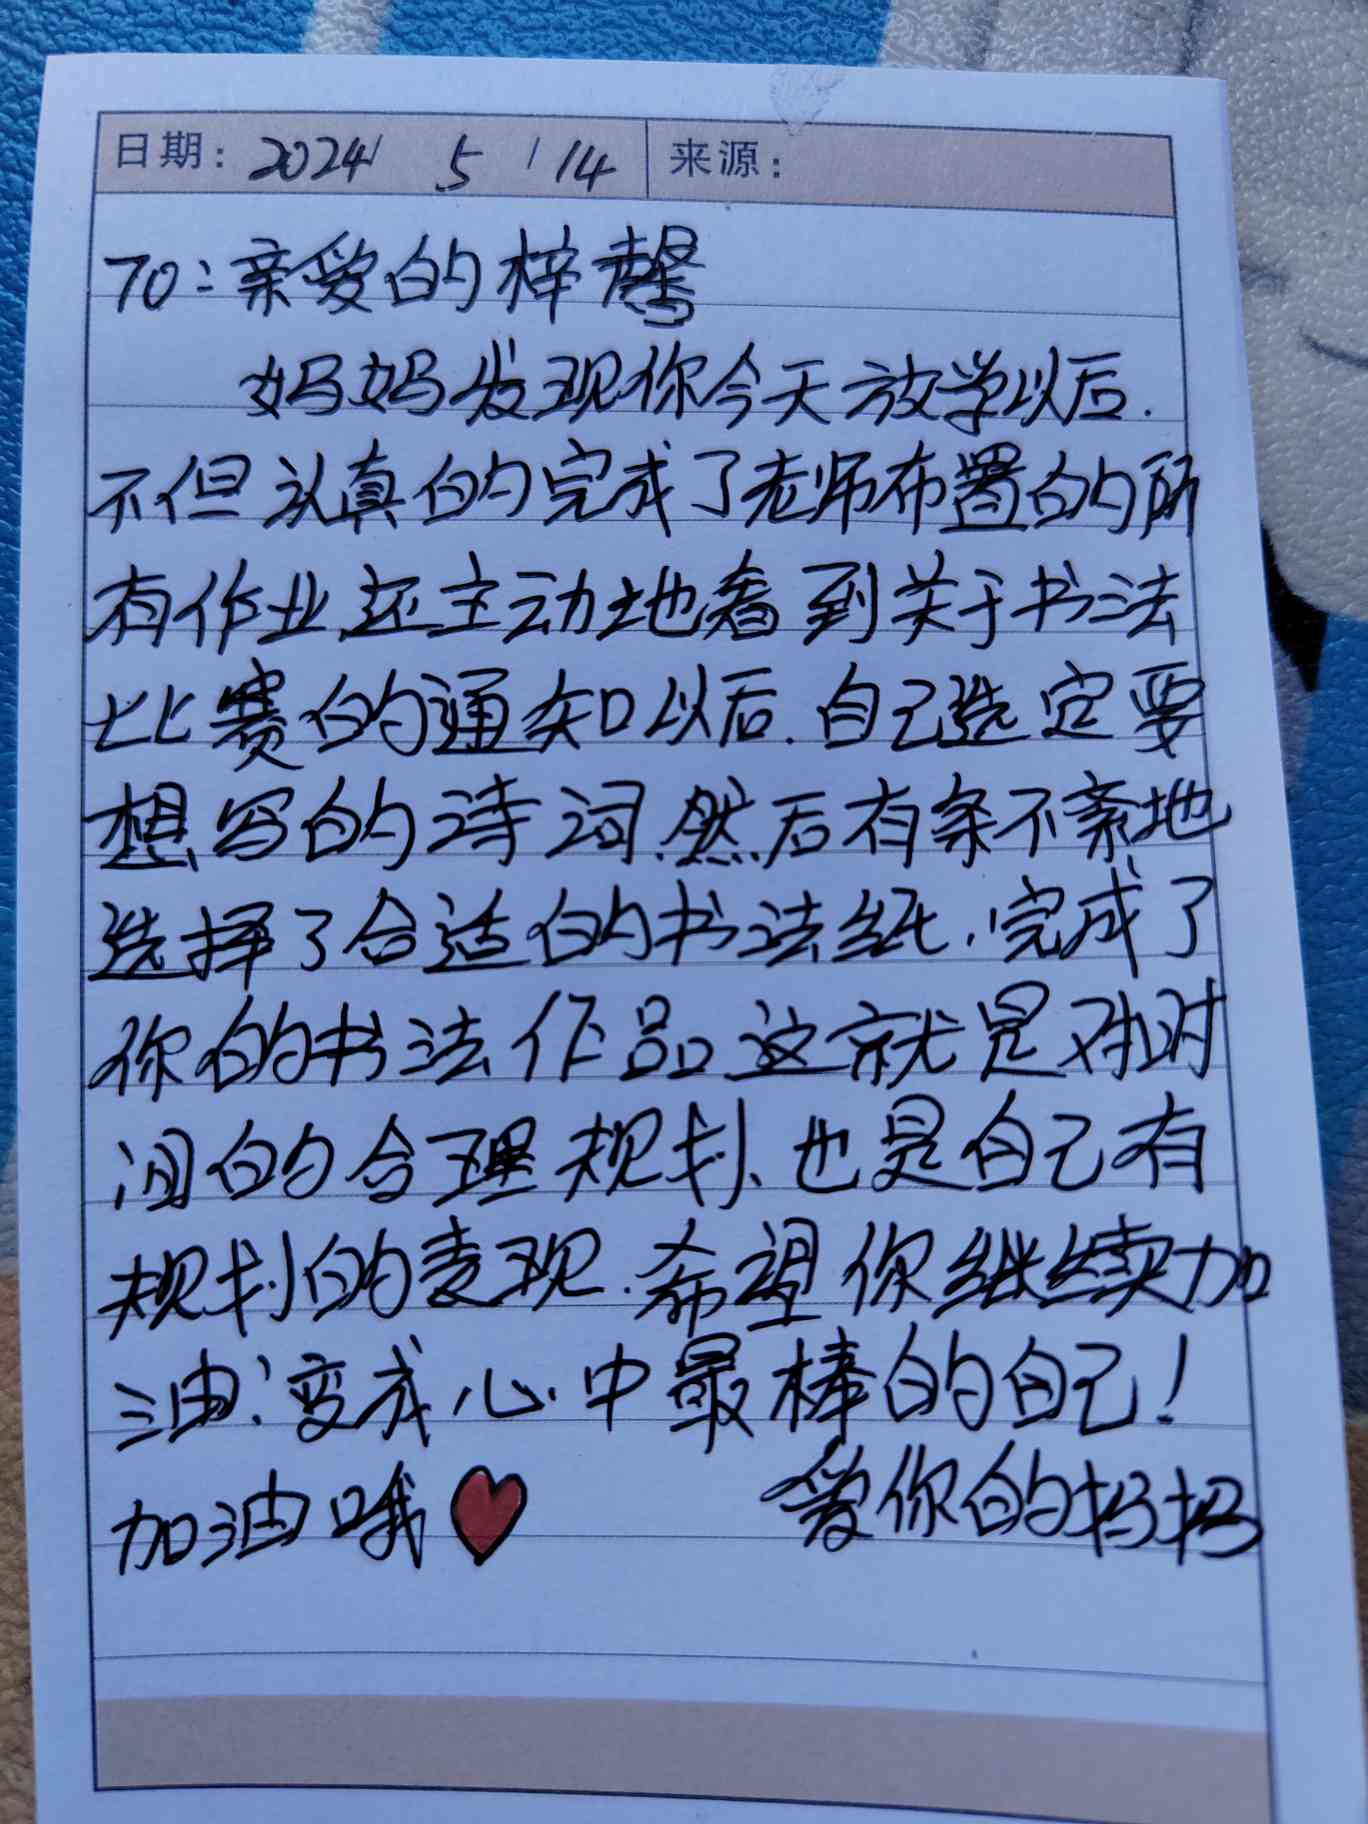 日期: 2024 5 / 14 来源:
TO:亲爱的梓馨
妈妈发现你今天放学以后.
不但认真的完成了老师布置的所
有作业,还主动地看到关于书法
比赛的通知以后.自己选定要
想写的诗词.然后有条不紊地
选择了合适的书法纸,完成了
你的书法作品.这就是对时
间的合理规划、也是自己有
规划的表现.希望你继续加
油!变成心中最棒的自己!
加油哦 爱你的妈妈